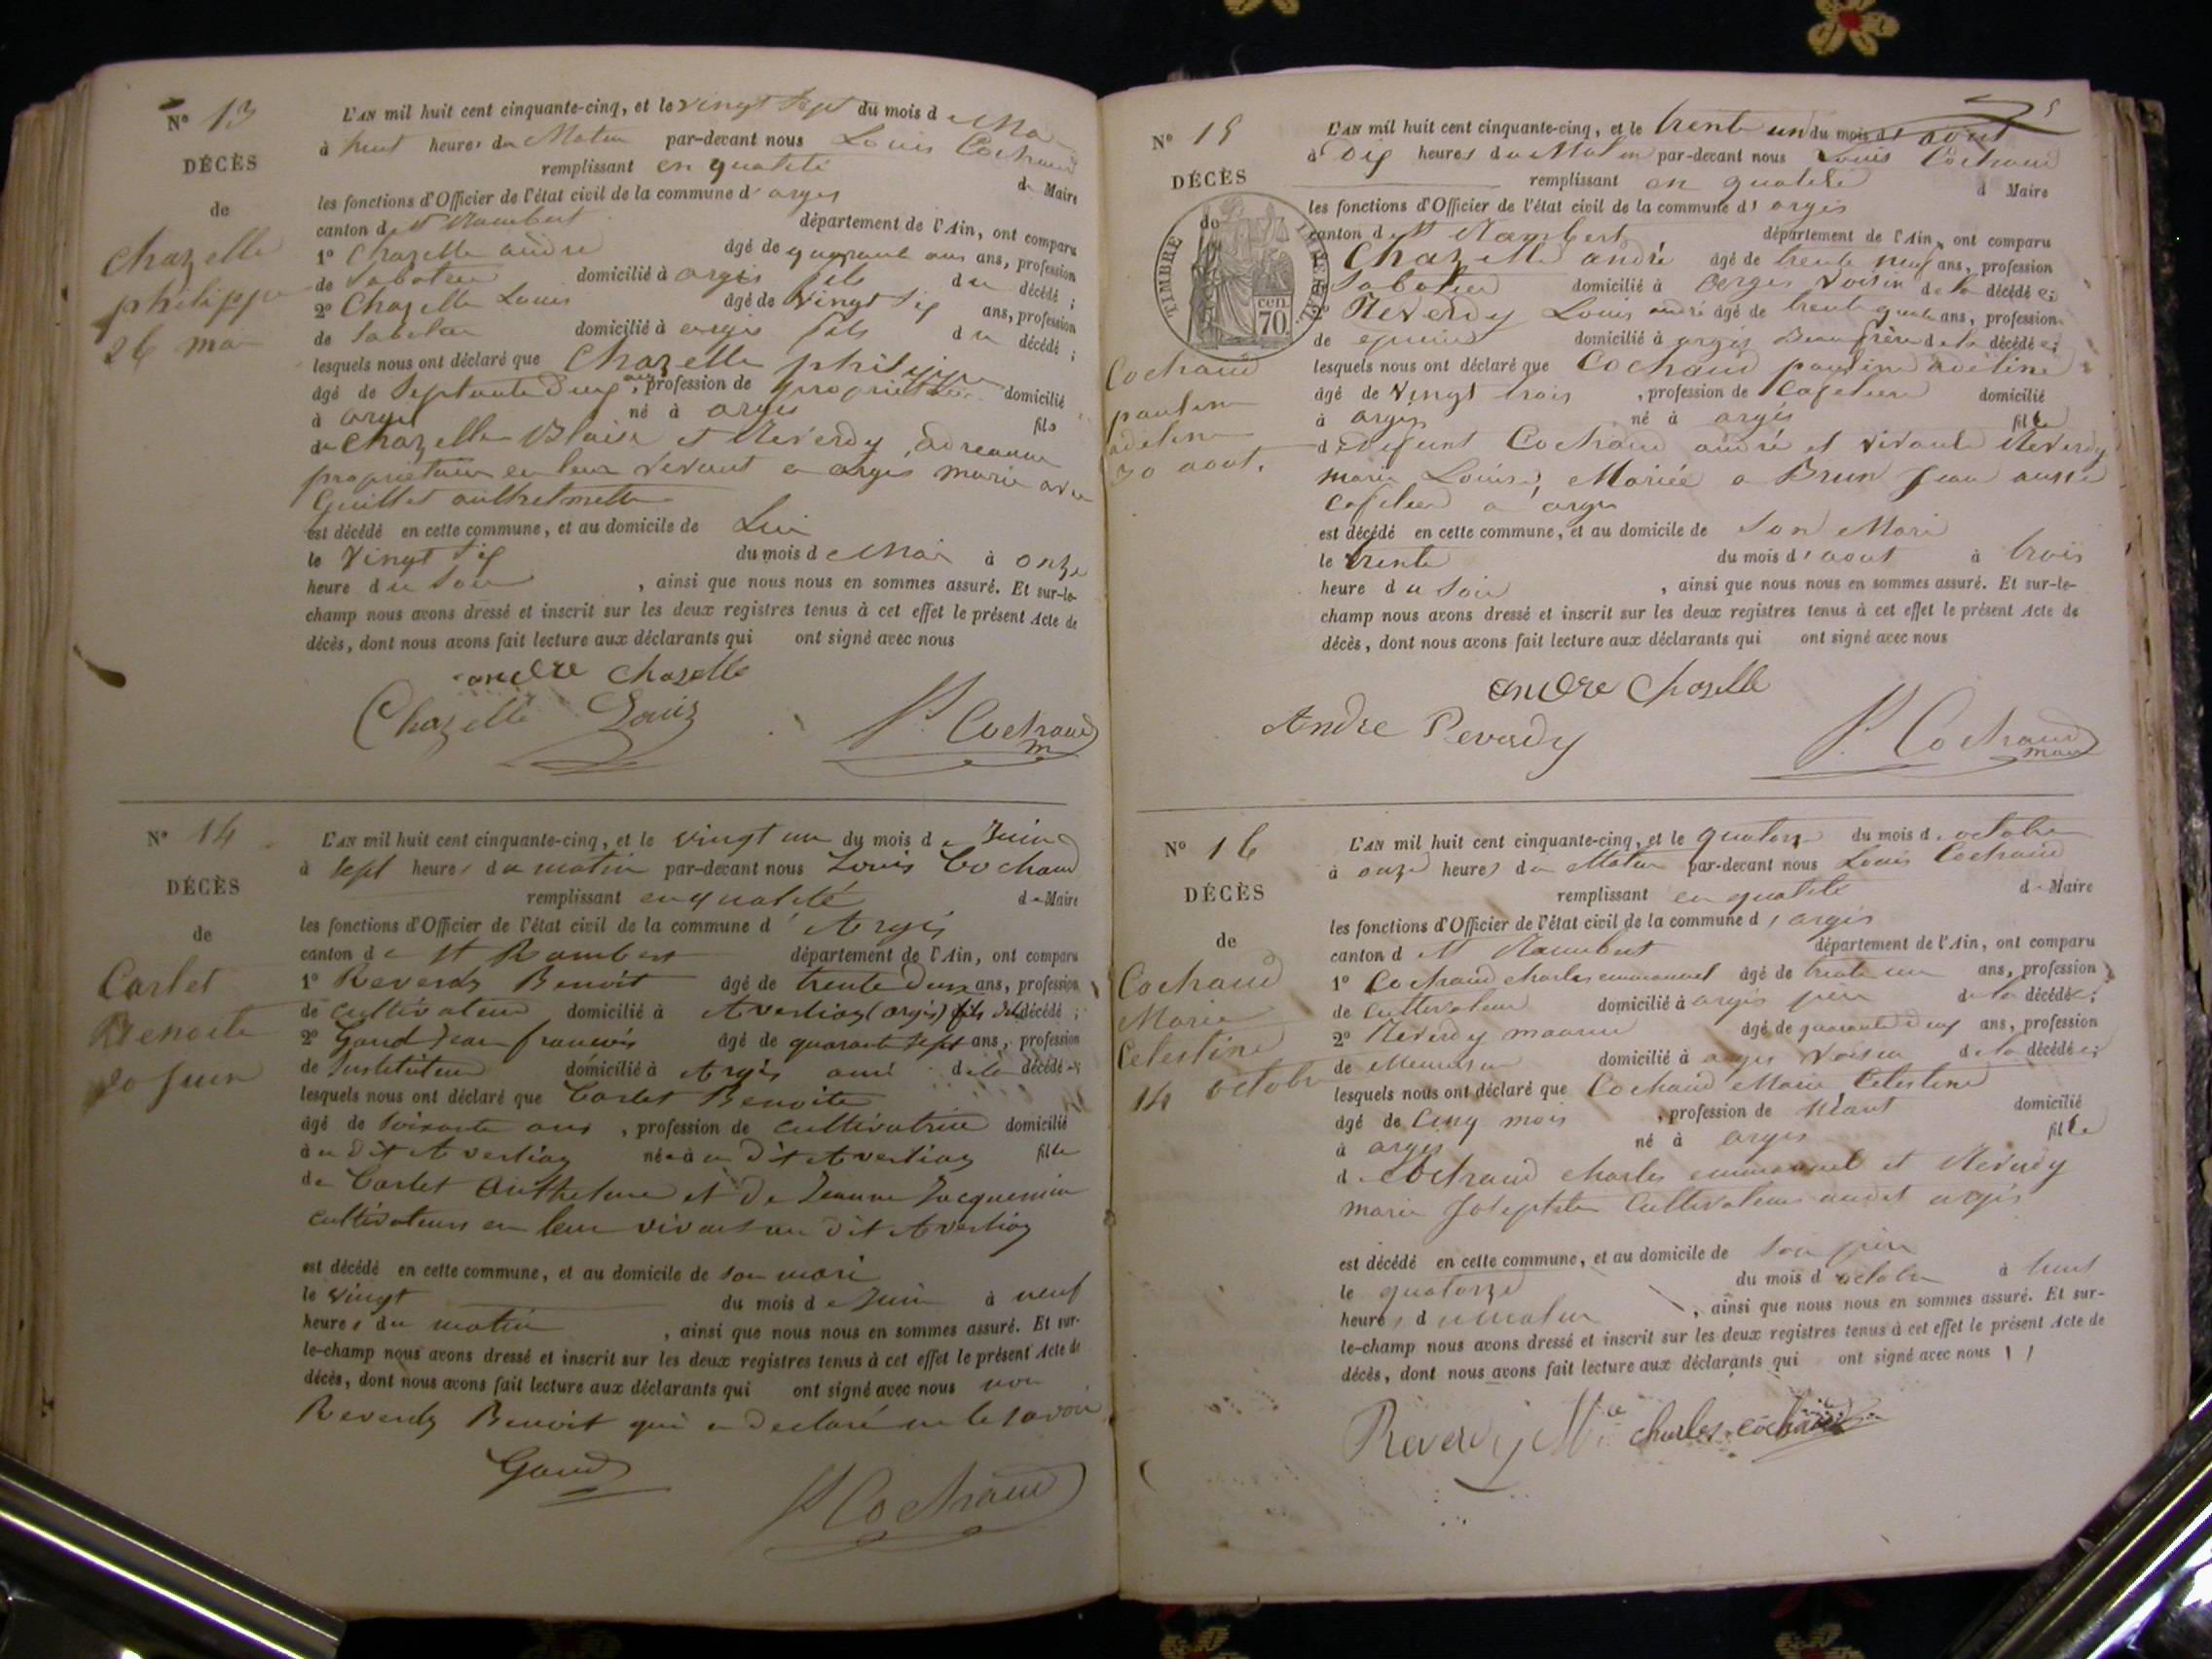 N° 13
DÉCÈS
de
Chazelle
philippe
26 mai
L'AN mil huit cent cinquante-cinq, et le vingt sept du mois d e Mai
à huit heures du Matin par-devant nous Louis Cochaud
remplissant en qualité de Maire
les fonctions d'Officier de l'état civil de la commune d' arges
canton de St Rambert département de l'Ain, ont comparu
1° Chazelle andre âgé de quarante ans, profession
de Sabotier domicilié à argis fils du décédé ;
2° Chazelle Louis âgé de vingt six ans, profession
de Sabotier domicilié à argis fils du décédé ;
lesquels nous ont déclaré que Chazelle philippe
âgé de Septante deux ans, profession de propriétaire domicilié
à argis né à argis fils
de Chazelle Blaise et Reverdy
propriétaire en leur vivant a argis marié avec
Guillet
est décédé en cette commune, et au domicile de Lui
le Vingt six du mois de Mai à onze
heure du Soir, ainsi que nous nous en sommes assuré. Et sur-le-
champ nous avons dressé et inscrit sur les deux registres tenus à cet effet le présent Acte de
décès, dont nous avons fait lecture aux déclarants qui ont signé avec nous
andre chazelle
Chazelle Louis
L. Cochaud
N° 14
DÉCÈS
de
Carlet
Benoite
20 juin
L'AN mil huit cent cinquante-cinq, et le vingt un du mois de Juin
à sept heures du matin par-devant nous Louis Cochaud
remplissant en qualité de Maire
les fonctions d'Officier de l'état civil de la commune d' Argis
canton de St Rambert département de l'Ain, ont comparu
1° Reverdy Benoit âgé de trente deux ans, profession
de cultivateur domicilié à Averliaz (argis) fils de la décédé ;
2° Gaud Jean françois âgé de quarante sept ans, profession
de Instituteur domicilié à Argis ami de la décédée ;
lesquels nous ont déclaré que Carlet Benoite
âgé de soixante ans, profession de cultivatrice domicilié
à u dit Averliaz née à u dit Averliaz fille
de Carlet Anthelme et de Jeanne Jacquemin
cultivateurs en leur vivant au dit Averliaz
est décédé en cette commune, et au domicile de son mari
le vingt du mois de Juin à neuf
heures du matin, ainsi que nous nous en sommes assuré. Et sur-
le-champ nous avons dressé et inscrit sur les deux registres tenus à cet effet le présent Acte de
décès, dont nous avons fait lecture aux déclarants qui ont signé avec nous non
Reverdy Benoit qui a declaré ne le savoir
Gaud
L Cochaud
N° 15
DÉCÈS
de
TIMBRE IMPÉRIAL
70 cen.
Cochaud
pauline
adeline
30 aout.
L'AN mil huit cent cinquante-cinq, et le trente un du mois d' aout
à Dix heures du Matin par-devant nous Louis Cochaud
remplissant en qualité d Maire
les fonctions d'Officier de l'état civil de la commune d' argis
canton d St Rambert département de l'Ain, ont comparu
Chazelle andré âgé de trente neuf ans, profession
Sabotier domicilié à argis voisin de la décédée ;
2° Reverdy Louis andré âgé de trente quatre ans, profession
de épicier domicilié à argis Beau frère de la décédée ;
lesquels nous ont déclaré que Cochaud pauline adeline
âgé de vingt trois, profession de Cafetiere domicilié
à argis né à argis fille
de défunt Cochaud andre et vivante Reverdy
marie Louise, Mariée a Brun Jean aussi
Cafetier a argis
est décédé en cette commune, et au domicile de Son Mari
le trente du mois d'aout à trois
heure du Soir, ainsi que nous nous en sommes assuré. Et sur-le-
champ nous avons dressé et inscrit sur les deux registres tenus à cet effet le présent Acte de
décès, dont nous avons fait lecture aux déclarants qui ont signé avec nous
andre chazelle
Andre Reverdy
L. Cochaud
maire
N° 16
DÉCÈS
de
Cochaud
Marie
Celestine
14 octobre
L'AN mil huit cent cinquante-cinq, et le quatorze du mois d. octobre
à onze heures du Matin par-devant nous Louis Cochaud
remplissant en qualité de Maire
les fonctions d'Officier de l'état civil de la commune d' argis
canton d St Rambert département de l'Ain, ont comparu
1° Cochaud charles emmanuel âgé de trente un ans, profession
de Cultivateur domicilié à argis père de la décédée ;
2° Reverdy âgé de quarante deux ans, profession
de Menuisier domicilié à argis voisin de la décédée ;
lesquels nous ont déclaré que Cochaud Marie Celestine
âgé de Cinq mois, profession de Néant domicilié
à argis né à argis fille
d. Cochaud charles emmanuel et Reverdy
marie Josephte Cultivateurs audit argis
est décédé en cette commune, et au domicile de Son père
le quatorze du mois d octobre à huit
heures d u matin, ainsi que nous nous en sommes assuré. Et sur-
le-champ nous avons dressé et inscrit sur les deux registres tenus à cet effet le présent Acte de
décès, dont nous avons fait lecture aux déclarants qui ont signé avec nous
Reverdy Mce charles cochaud